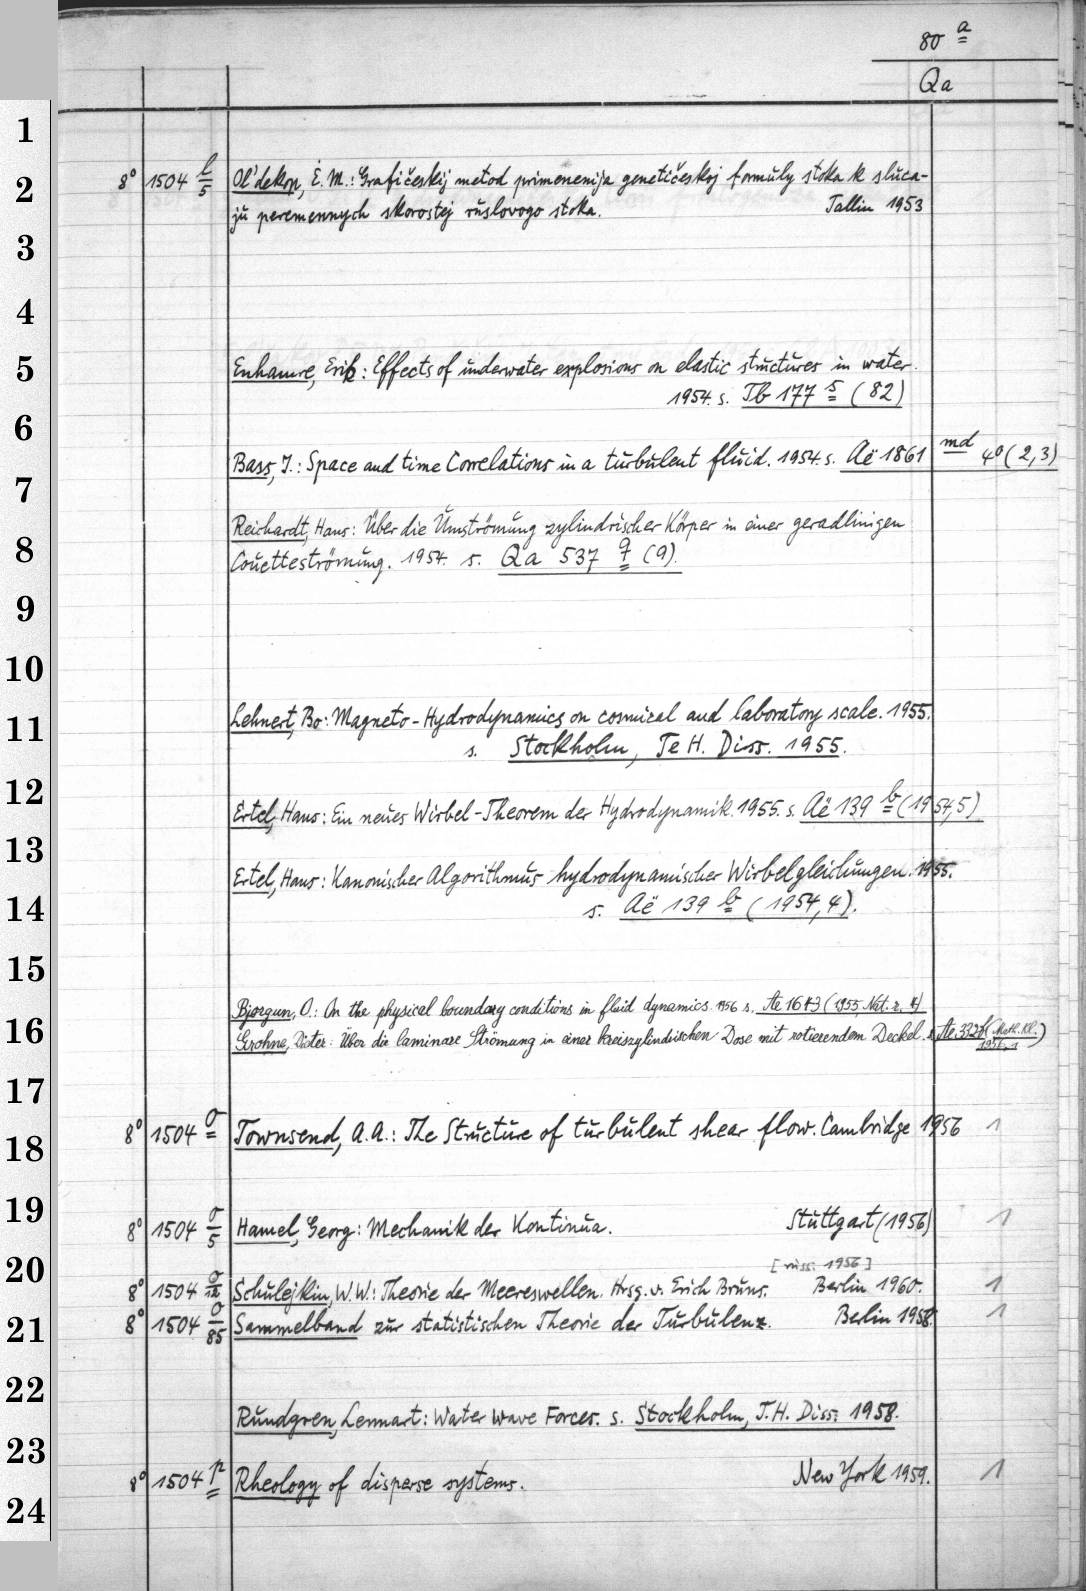 80 a
Qa
1
2
3
4
5
6
7
8
9
10
11
12
13
14
15
16
17
18
19
20
21
22
23
24
8° 1504 l/5 Ol'dekop, Ė. M.: Grafičeskij metod primenenija genetičeskoj formuly stoka k sluča-
ju peremennych skorostej ruslovogo stoka. Tallin 1953
Enhamre, Erik: Effects of underwater explosions on elastic structures in water.
1954. s. Tb 177 s (82)
Bass, J.: Space and time Correlations in a turbulent fluid. 1954. s. Aë 1861 md 4° (2,3)
Reichardt, Hans: Über die Umströmung zylindrischer Körper in einer geradlinigen
Couetteströmung. 1954. s. Qa 537 q (9).
Lehnert, Bo: Magneto-Hydrodynamics on cosmical and laboratory scale. 1955.
s. Stockholm, Te H. Diss. 1955.
Ertel, Hans: Ein neues Wirbel-Theorem der Hydrodynamik. 1955. s. Aë 139 b (1954,5)
Ertel, Hans: Kanonischer Algorithmus hydrodynamischer Wirbelgleichungen. 1955.
s. Aë 139 b (1954,4).
Bjorgum, O.: On the physical boundary conditions in fluid dynamics. 1956 s. Ae 1643 (1955 Nat. r. 4)
Grohne, Dieter: Über die laminare Strömung in einer kreiszylindrischen Dose mit rotierendem Deckel. s. Ae 332 (Math. Kl.
1956,1)
8° 1504 o Townsend, A.A.: The Structure of turbulent shear flow. Cambridge 1956 1
8° 1504 o/5 Hamel, Georg: Mechanik der Kontinua. Stuttgart (1956) 1
[russ. 1956]
8° 1504 o/12 Schulejkin, W.W.: Theorie der Meereswellen. Hrsg. v. Erich Bruns. Berlin 1960. 1
8° 1504 o/85 Sammelband zur statistischen Theorie der Turbulenz. Berlin 1958. 1
Rundgren, Lennart: Water Wave Forces. s. Stockholm, T.H. Diss. 1958.
8° 1504 p Rheology of disperse systems. New York 1959. 1